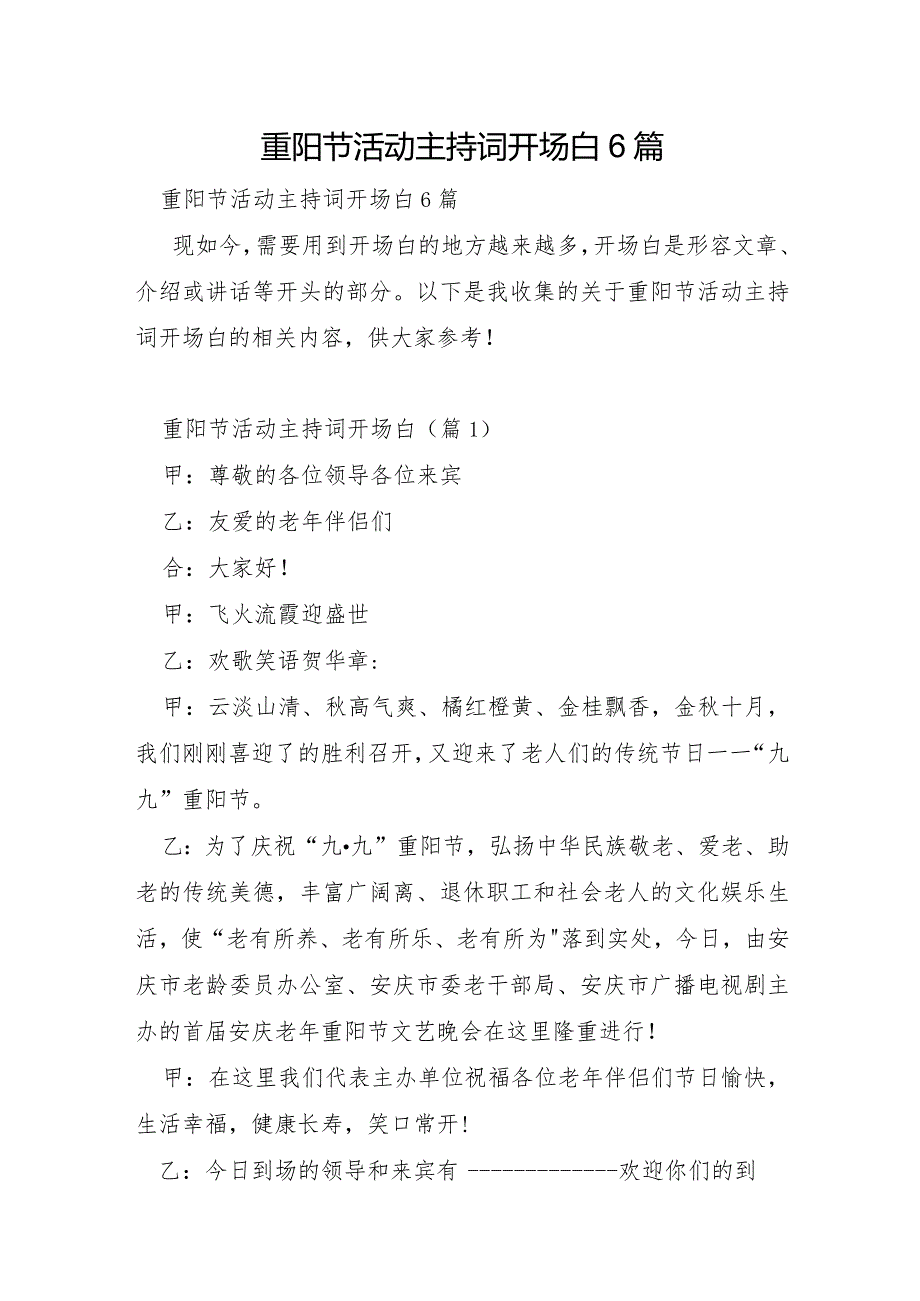 重阳节活动主持词开场白6篇
重阳节活动主持词开场白6篇
现如今,需要用到开场白的地方越来越多,开场白是形容文章、
介绍或讲话等开头的部分。以下是我收集的关于重阳节活动主持
词开场白的相关内容，供大家参考！
重阳节活动主持词开场白（篇1）
甲：尊敬的各位领导各位来宾
乙：友爱的老年伴侣们
合：大家好！
甲：飞火流霞迎盛世
乙：欢歌笑语贺华章:
甲：云淡山清、秋高气爽、橘红橙黄、金桂飘香，金秋十月，
我们刚刚喜迎了的胜利召开,又迎来了老人们的传统节日一一“九
九”重阳节。
乙：为了庆祝“九•九”重阳节，弘扬中华民族敬老、爱老、助
老的传统美德，丰富广阔离、退休职工和社会老人的文化娱乐生
活，使“老有所养、老有所乐、老有所为"落到实处，今日，由安
庆市老龄委员办公室、安庆市委老干部局、安庆市广播电视剧主
办的首届安庆老年重阳节文艺晚会在这里隆重进行！
甲：在这里我们代表主办单位祝福各位老年伴侣们节日愉快，
生活幸福，健康长寿，笑口常开!
乙：今日到场的领导和来宾有 -------------欢迎你们的到